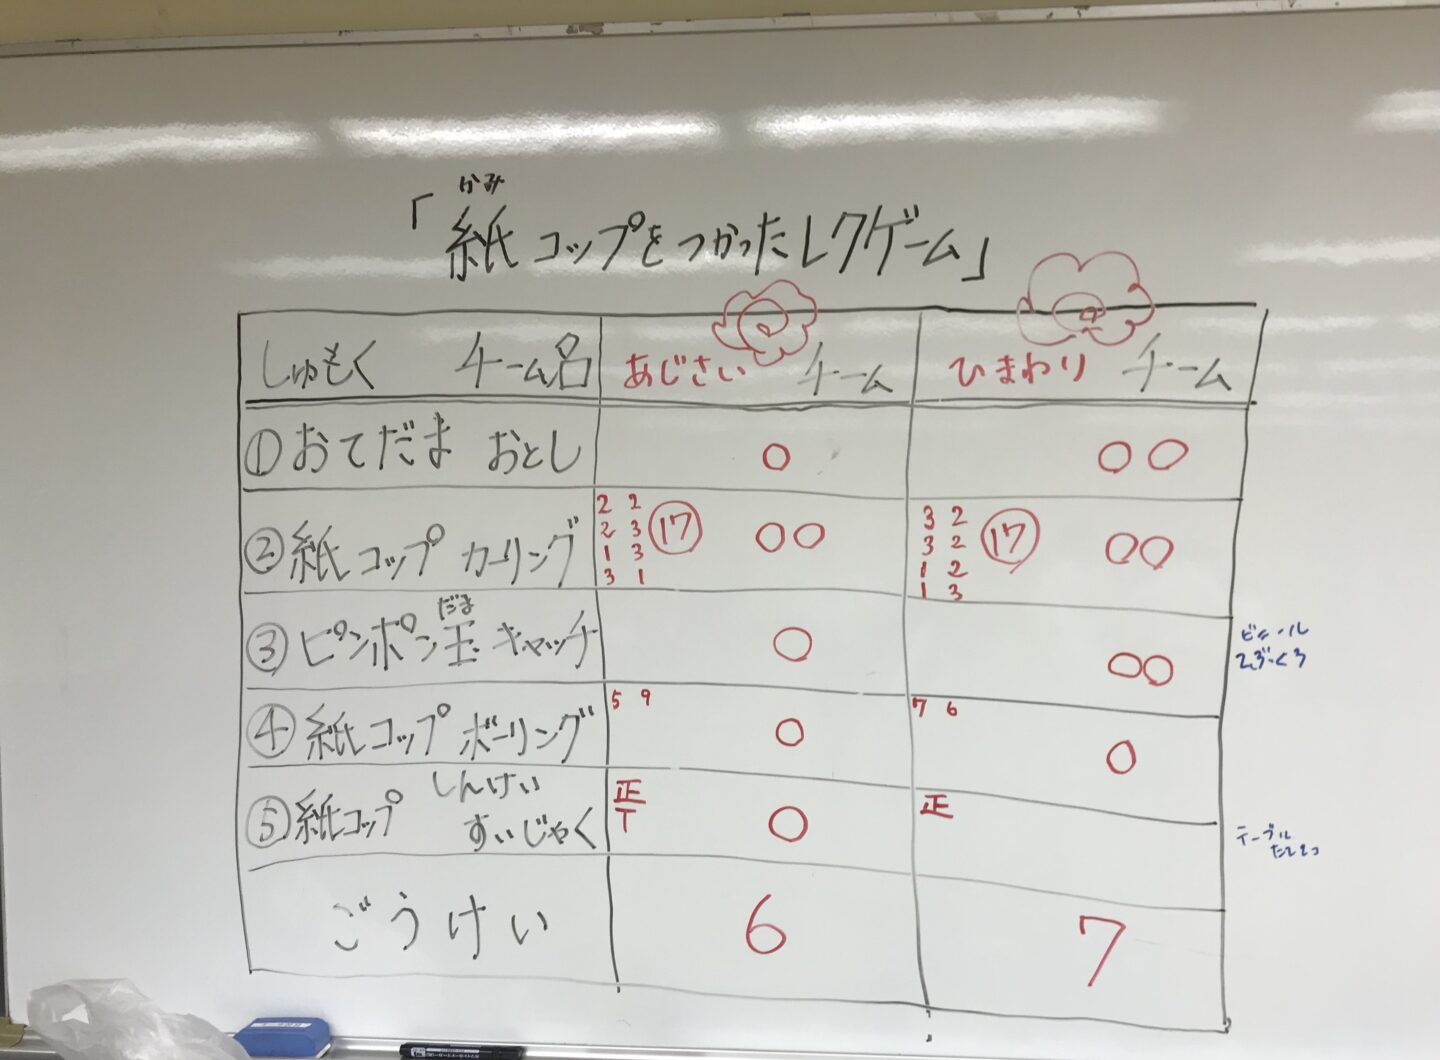 かみ
「紙コップをつかったレクゲーム」
しゅもく チーム名 あじさい チーム ひまわり チーム
①おてだま おとし ○ ○○
②紙コップ カーリング 2 2 ⑰ ○○ 3 2 ⑰ ○○
2 3 3 2
1 3 1 2
3 1 1 3
だま
③ピンポン玉キャッチ ○ ○○
ビニール
④紙コップ ボーリング 5 9 ○ 7 6 ○
⑤紙コップ しんけい 正 ○ 正
すいじゃく T
テーブル
ごうけい 6 7